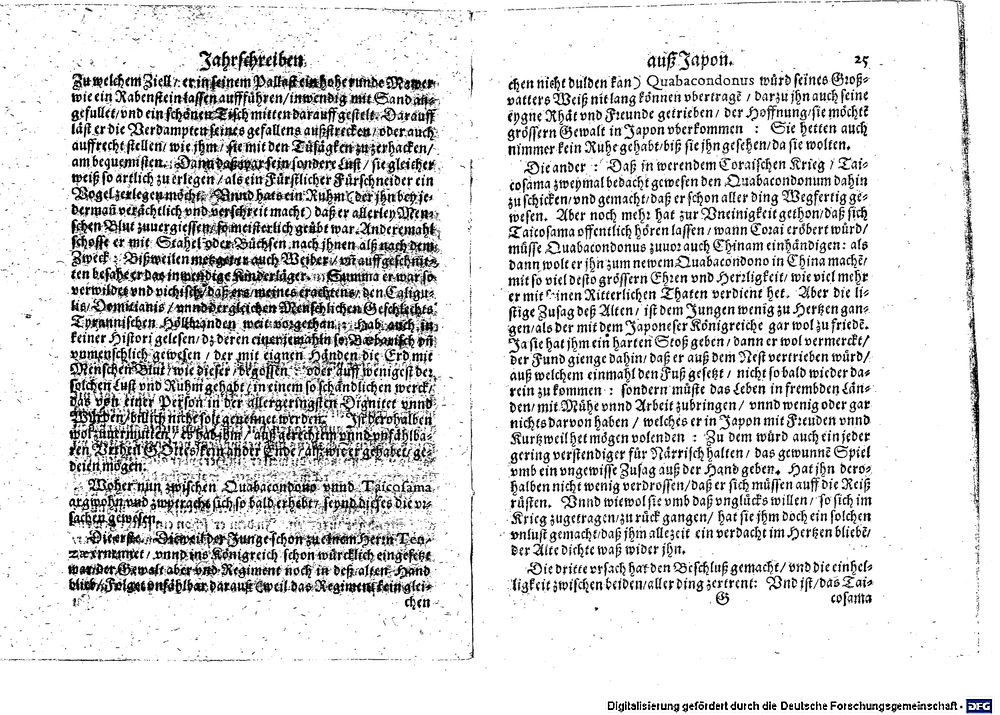 Jahrschreiben
Zu welchem Ziell / er in seinem Pallast ein hohe runde Mawer
wie ein Rabenstein lassen auffführen / inwendig mit Sand an-
gefüllet / vnd ein schönen Tisch mitten darauff gestelt. Darauff
läst er die Verdampten seines gefallens außstrecken / oder auch
auffrecht stellen / wie jhm / sie mit den Tüsägken zu zerhacken /
am bequemisten. Dann daß war sein sondere Lust / sie gleicher
weiß so artlich zu erlegen / als ein Fürstlicher Fürschneider ein
Vogel zerlegen möcht. Vnnd hats ein Ruhm (der jhn bey je-
dermañ verächtlich vnd verschreit macht) daß er allerley Men-
schen Blut zuuergiessen / so meisterlich geübt war. Anderemahl
schosse er mit Stahel oder Büchsen nach jhnen alß nach dem
Zweck: Bißweilen metzgeter auch Weiber / vñ auffgeschnit-
ten besahe er das inwendige Kinderläger. Summa er war so
verwildet vnd vichisch / daß ers / meines erachtens / den Caligu-
lis / Domitianis / vnnd dergleichen Menschlichen Geschlechts
Tyrannischen Höllbranden weit vorgethan. Hab auch in
keiner Histori gelesen / dz deren einer jemahln so Barbarisch vñ
vnmenschlich gewesen / der mit eignen Händen die Erd mit
Menschen Blut / wie dieser / begossen: oder auff wenigest der
solchen Lust vnd Ruhm gehabt / in einem so schändlichen werck /
das von einer Person in der allergeringsten Dignitet vnnd
Würden / billich nicht solt genennet werden. Ist derohalben
wol zuuermuten / es hab jhm / auß gerechtem vnnd vnfählba-
ren Vrtheil GOttes / kein ander Ende / alß wie er gehabt / ge-
deien mögen.
Woher nun zwischen Quabacondono vnnd Taicosama
argwohn vnd zweytracht sich so bald erhebt / seynd dieses die vr-
sachen gewesen.
Die erste. Dieweil der Junge schon zu einem Herrn Ten-
ernennet / vnnd ins Königreich schon würcklich eingesetzt
war / der Gewalt aber vnd Regiment noch in deß alten Hand
blieb / Folget vnfählbar darauß (weil das Regiment kein glei-
chen
auß Japon. 25
chen nicht dulden kan) Quabacondonus würd seines Groß-
vatters Weiß nit lang können vbertragē / darzu jhn auch seine
eygne Rhät vnd Freunde getrieben / der Hoffnung / sie möchtē
grössern Gewalt in Japon vberkommen: Sie hetten auch
nimmer kein Ruhe gehabt / biß sie jhn gesehen / da sie wolten.
Die ander: Daß in werendem Coraischen Krieg / Tai-
cosama zweymal bedacht gewesen den Quabacondonum dahin
zu schicken / vnd gemacht / daß er schon aller ding Wegfertig ge-
wesen. Aber noch mehr hat zur Vneinigkeit gethon / daß sich
Taicosama offentlich hören lassen / wann Corai eröbert würd /
müsse Quabacondonus zuuor auch Chinam einhändigen: als
dann wolt er jhn zum newem Quabacondono in China machē /
mit so viel desto grössern Ehren vnd Herzligkeit / wie viel mehr
er mit seinen Ritterlichen Thaten verdient het. Aber die li-
stige Zusag deß Alten / ist dem Jungen wenig zu Hertzen gan-
gen / als der mit dem Japoneser Königreiche gar wol zu friedē.
Ja sie hat jhm ein harten Stoß geben / dann er wol vermerckt /
der Fund gienge dahin / daß er auß dem Nest vertrieben würd /
auß welchem einmahl den Fuß gesetzt / nicht so bald wieder da-
rein zu kommen: sondern müste das Leben in frembden Län-
den / mit Mühe vnnd Arbeit zubringen / vnnd wenig oder gar
nichts darvon haben / welches er in Japon mit Freuden vnnd
Kurtzweil het mögen volenden: Zu dem würd auch ein jeder
gering verstendiger für Närrisch halten / das gewunnē Spiel
vmb ein vngewisse Zusag auß der Hand geben. Hat jhn dero-
halben nicht wenig verdrossen / daß er sich müssen auff die Reiß
rüsten. Vnnd wiewol sie vmb daß vnglücks willen / so sich im
Krieg zugetragen / zu rück gangen / hat sie jhm doch ein solchen
vnlust gemacht / daß jhm allezeit ein verdacht im Hertzen bliebē /
der Alte dichte waß wider jhn.
Die dritte vrsach hat den Beschluß gemacht / vnd die einhel-
ligkeit zwischen beiden / aller ding zertrent: Vnd ist / das Tai-
G cosama
Digitalisierung gefördert durch die Deutsche Forschungsgemeinschaft - DFG